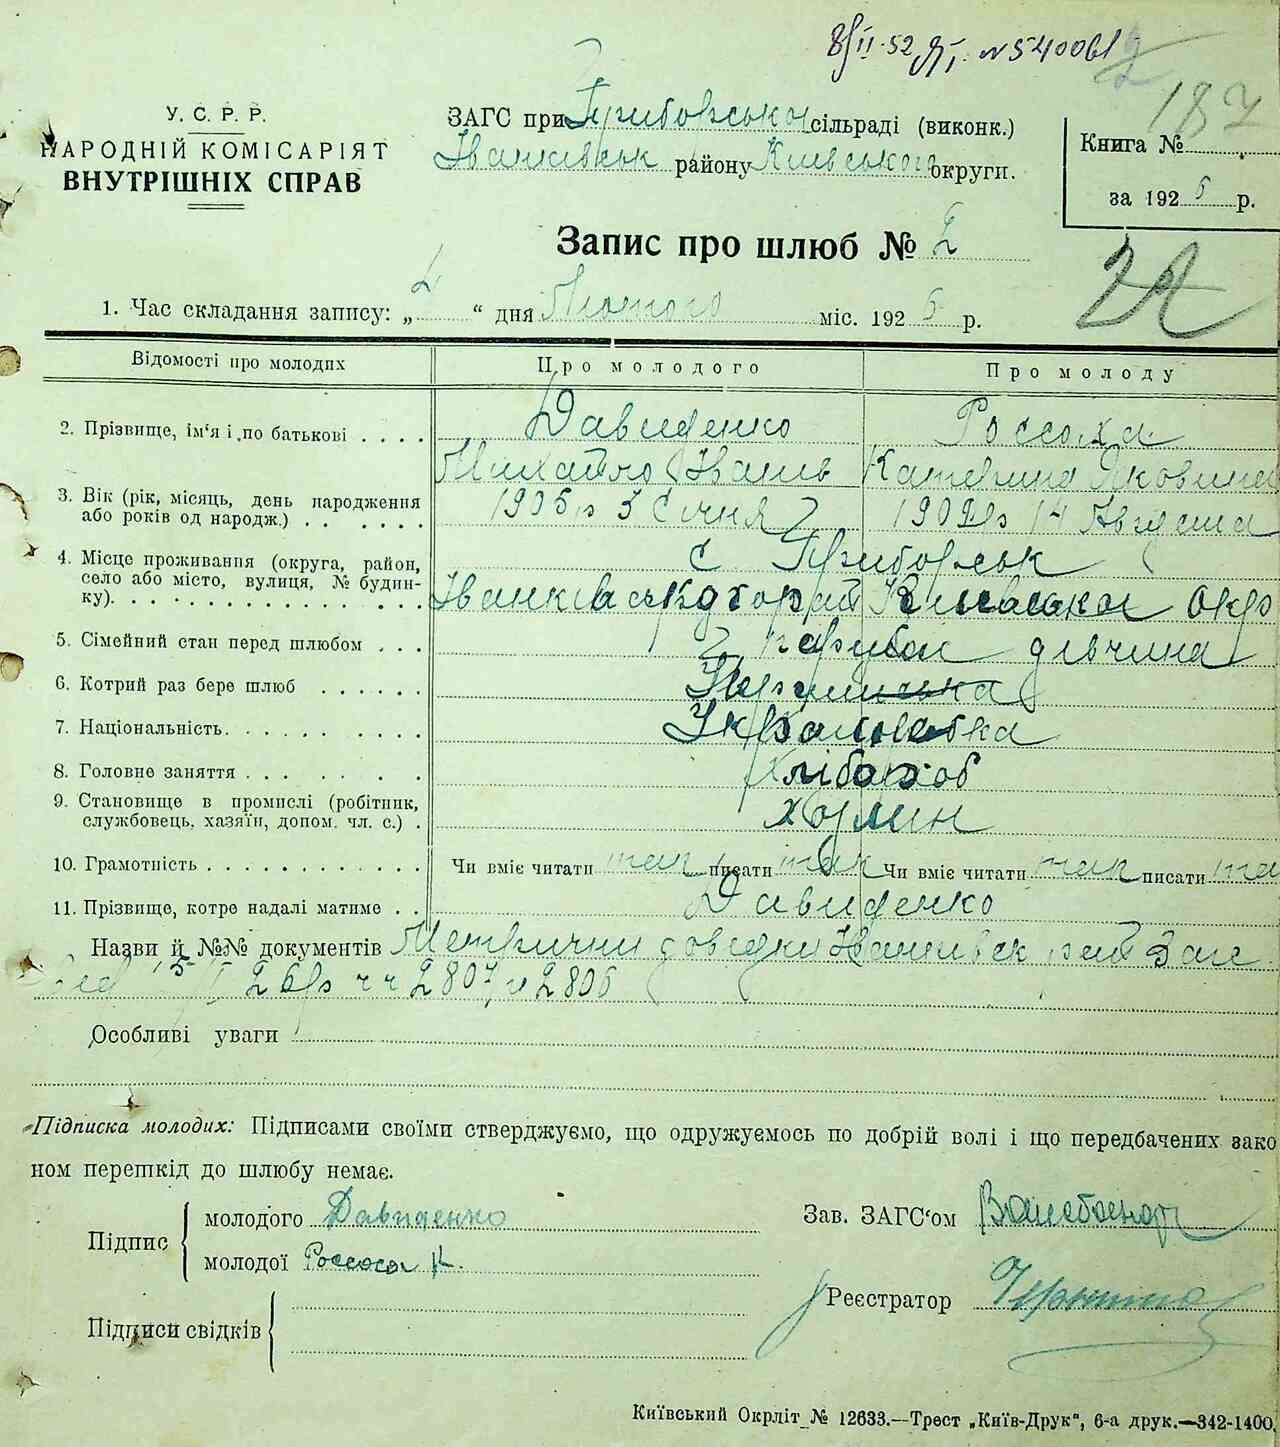 8/II-52 № 540061
187
У. С. Р. Р.
НАРОДНІЙ КОМІСАРІЯТ
ВНУТРІШНІХ СПРАВ
ЗАГС при Приборська сільраді (виконк.)
Іванківськ району Київського округи.
Книга №
за 1926 р.
Запис про шлюб №
1. Час складання запису: „ “ дня Лютого міс. 1926 р.
Відомості про молодих Про молодого Про молоду
2. Прізвище, ім'я і по батькові . . . . Давиденко Россоха
Михайло Іванів Катерина Яковина
3. Вік (рік, місяць, день народження
або років од народж.) . . . . . . 1905 р Січня 1902 р 14 Августа
4. Місце проживання (округа, район,
село або місто, вулиця, № будин-
ку). . . . . . . . . . . . . . .
с Приборськ
Київської окр
5. Сімейний стан перед шлюбом . . . парубок дівчина
6. Котрий раз бере шлюб . . . . . .
7. Національність. . . . . . . . . .
8. Головне заняття . . . . . . . . хлібороб
9. Становище в промислі (робітник,
службовець, хазяїн, допом. чл. с.) .
10. Грамотність . . . . . . . . . . . Чи вміє читати так писати так Чи вміє читати так писати та
11. Прізвище, котре надалі матиме . . Давиденко
Назви й №№ документів Метричні довідки Іванківськ рай Загс
26 р ч ч 2807 и 2806
Особливі уваги
Підписка молодих: Підписами своїми стверджуємо, що одружуємось по добрій волі і що передбачених зако
ном перешкід до шлюбу немає.
Підпис
молодого Давиденко
молодої Россоха К.
Зав. ЗАГС'ом
Реєстратор
Підписи свідків
Київський Окрліт № 12633.—Трест „Київ-Друк“, 6-а друк.—342-1400.